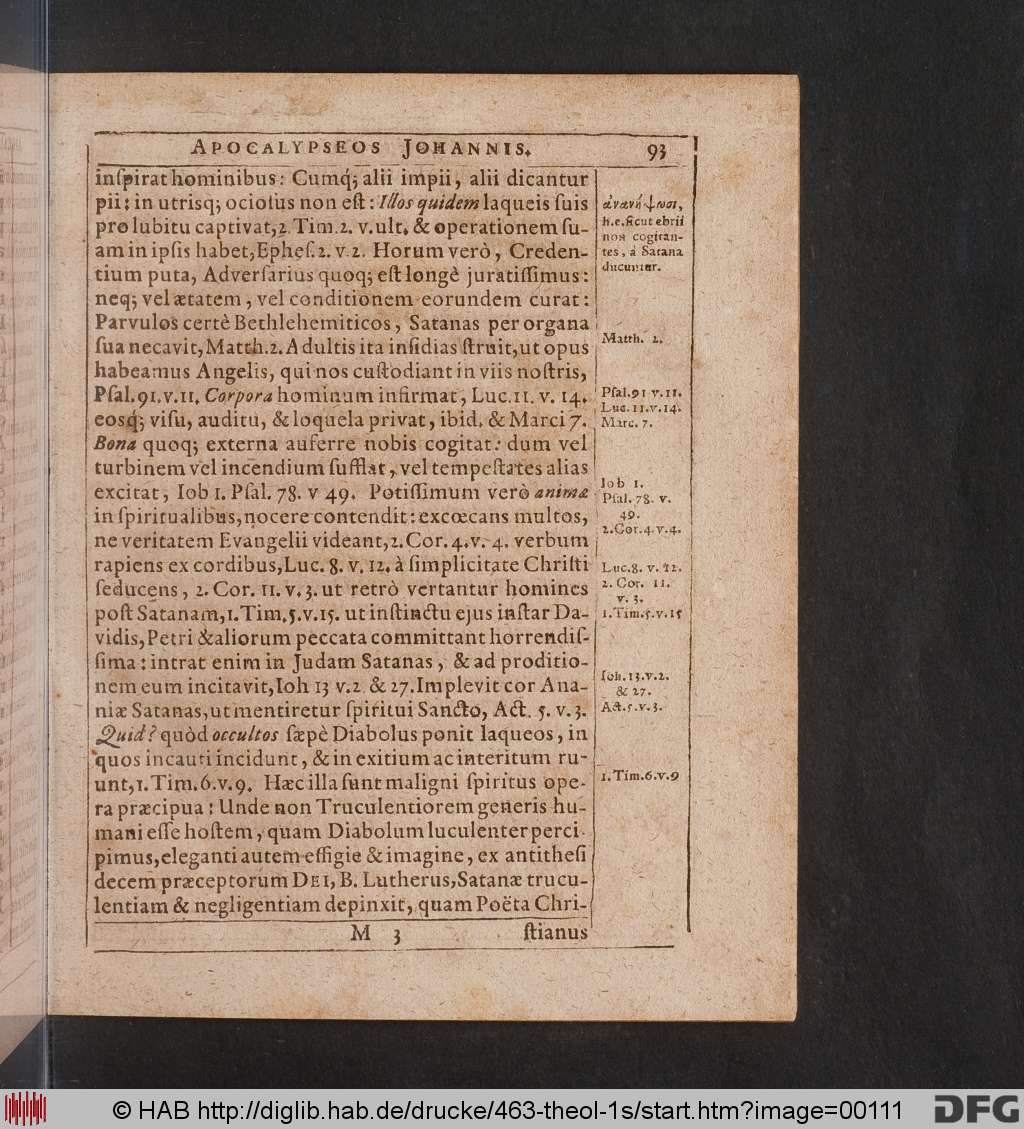 APOCALYPSEOS JOHANNIS. 93
inſpirat hominibus: Cumq́; alii impii, alii dicantur
pii: in utrisq; ocioſus non eſt: Illos quidem laqueis ſuis
pro lubitu captivat, 2. Tim. 2. v. ult. & operationem ſu-
am in ipſis habet, Epheſ. 2. v. 2. Horum verò, Creden-
tium puta, Adverſarius quoq; eſt longè juratiſſimus:
neq; vel ætatem, vel conditionem eorundem curat:
Parvulos certè Bethlehemiticos, Satanas per organa
ſua necavit, Matth. 2. Adultis ita inſidias ſtruit, ut opus
habeamus Angelis, qui nos cuſtodiant in viis noſtris,
Pſal. 91. v. 11. Corpora hominum infirmat, Luc. 11. v. 14.
eosq́; viſu, auditu, & loquela privat, ibid. & Marci 7.
Bona quoq; externa auferre nobis cogitat: dum vel
turbinem vel incendium ſufflat, vel tempeſtates alias
excitat, Iob 1. Pſal. 78. v 49. Potiſſimum verò animæ
in ſpiritualibus, nocere contendit: excœcans multos,
ne veritatem Evangelii videant, 2. Cor. 4. v. 4. verbum
rapiens ex cordibus, Luc. 8. v. 12. à ſimplicitate Chriſti
ſeducens, 2. Cor. 11. v. 3. ut retrò vertantur homines
poſt Satanam, 1. Tim. 5. v. 15. ut inſtinctu ejus inſtar Da-
vidis, Petri & aliorum peccata committant horrendiſ-
ſima: intrat enim in Judam Satanas, & ad proditio-
nem eum incitavit, Ioh 13 v. 2. & 27. Implevit cor Ana-
niæ Satanas, ut mentiretur ſpiritui Sancto, Act. 5. v. 3.
Quid? quòd occultos ſæpè Diabolus ponit laqueos, in
quos incauti incidunt, & in exitium ac interitum ru-
unt, 1. Tim. 6. v. 9. Hæc illa ſunt maligni ſpiritus ope-
ra præcipua: Unde non Truculentiorem generis hu-
mani eſſe hoſtem, quam Diabolum luculenter perci-
pimus, eleganti autem effigie & imagine, ex antitheſi
decem præceptorum DEI, B. Lutherus, Satanæ trucu-
lentiam & negligentiam depinxit, quam Poëta Chri-
M 3 ſtianus
ἀνανήψωσι,
h. e. ſicut ebrii
non cogitan-
tes, à Satana
ducuntur.
Matth. 2.
Pſal. 91 v. 11.
Luc. 11. v. 14.
Marc. 7.
Iob 1.
Pſal. 78. v.
49.
2. Cor. 4. v. 4.
Luc. 8. v. 12.
2. Cor. 11.
v. 3.
1. Tim. 5. v. 15
Ioh. 13. v. 2.
& 27.
Act. 5. v. 3.
1. Tim. 6. v. 9
© HAB http://diglib.hab.de/drucke/463-theol-1s/start.htm?image=00111
DFG